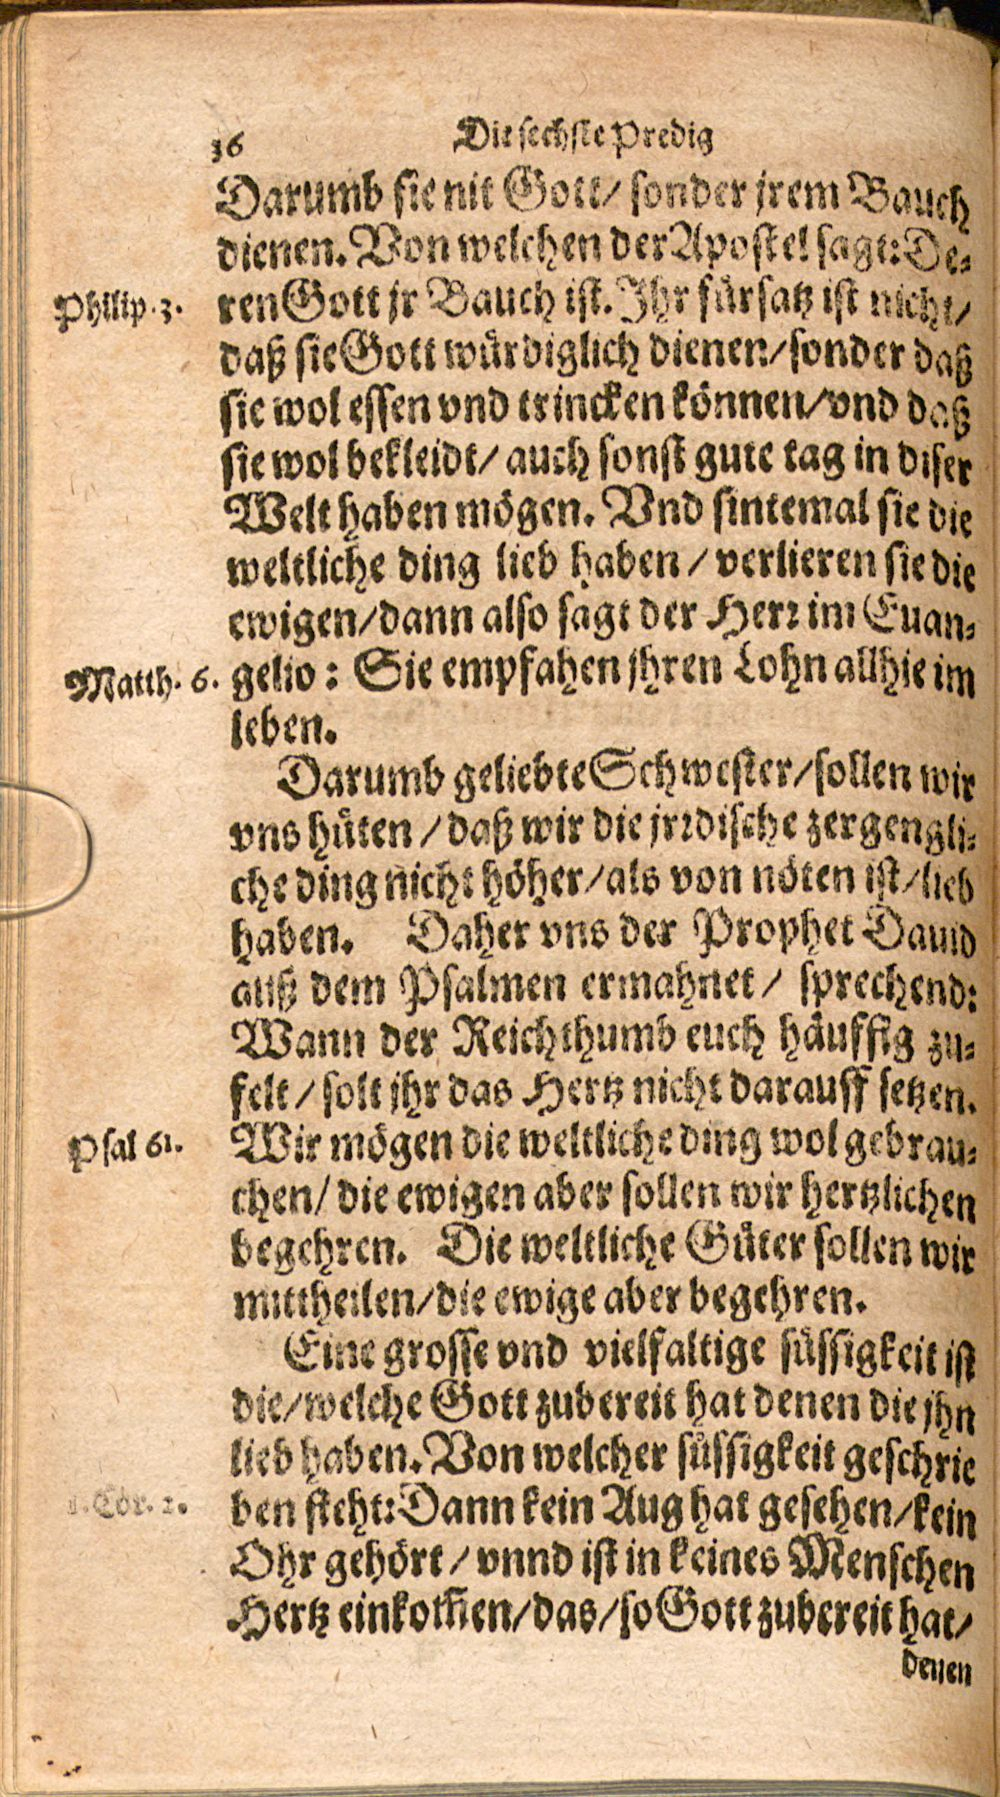 36 Die sechste Predig
Darumb sie nit Gott/ sonder jrem Bauch
dienen. Von welchen der Apostel sagt: De-
Philip. 3. ren Gott jr Bauch ist. Ihr fürsatz ist nicht/
daß sie Gott würdiglich dienen/ sonder daß
sie wol essen vnd trincken können/ vnd daß
sie wol bekleidt/ auch sonst gute tag in diser
Welt haben mögen. Vnd sintemal sie die
weltliche ding lieb haben/ verlieren sie die
ewigen/ dann also sagt der Herr im Euan-
Matth. 6. gelio: Sie empfahen jhren Lohn allhie im
leben.
Darumb geliebte Schwester/ sollen wir
vns hüten/ daß wir die jrrdische zergengli-
che ding nicht höher/ als von nöten ist/ lieb
haben. Daher vns der Prophet Dauid
auß dem Psalmen ermahnet/ sprechend:
Wann der Reichthumb euch häuffig zu-
felt/ solt jhr das Hertz nicht darauff setzen.
Psal 61. Wir mögen die weltliche ding wol gebrau-
chen/ die ewigen aber sollen wir hertzlichen
begehren. Die weltliche Güter sollen wir
mittheilen/ die ewige aber begehren.
Eine grosse vnd vielfaltige süssigkeit ist
die/ welche Gott zubereit hat denen die jhn
lieb haben. Von welcher süssigkeit geschrie
1. Cor. 2. ben steht: Dann kein Aug hat gesehen/ kein
Ohr gehört/ vnnd ist in keines Menschen
Hertz einkom̃en/ das/ so Gott zubereit hat/
denen